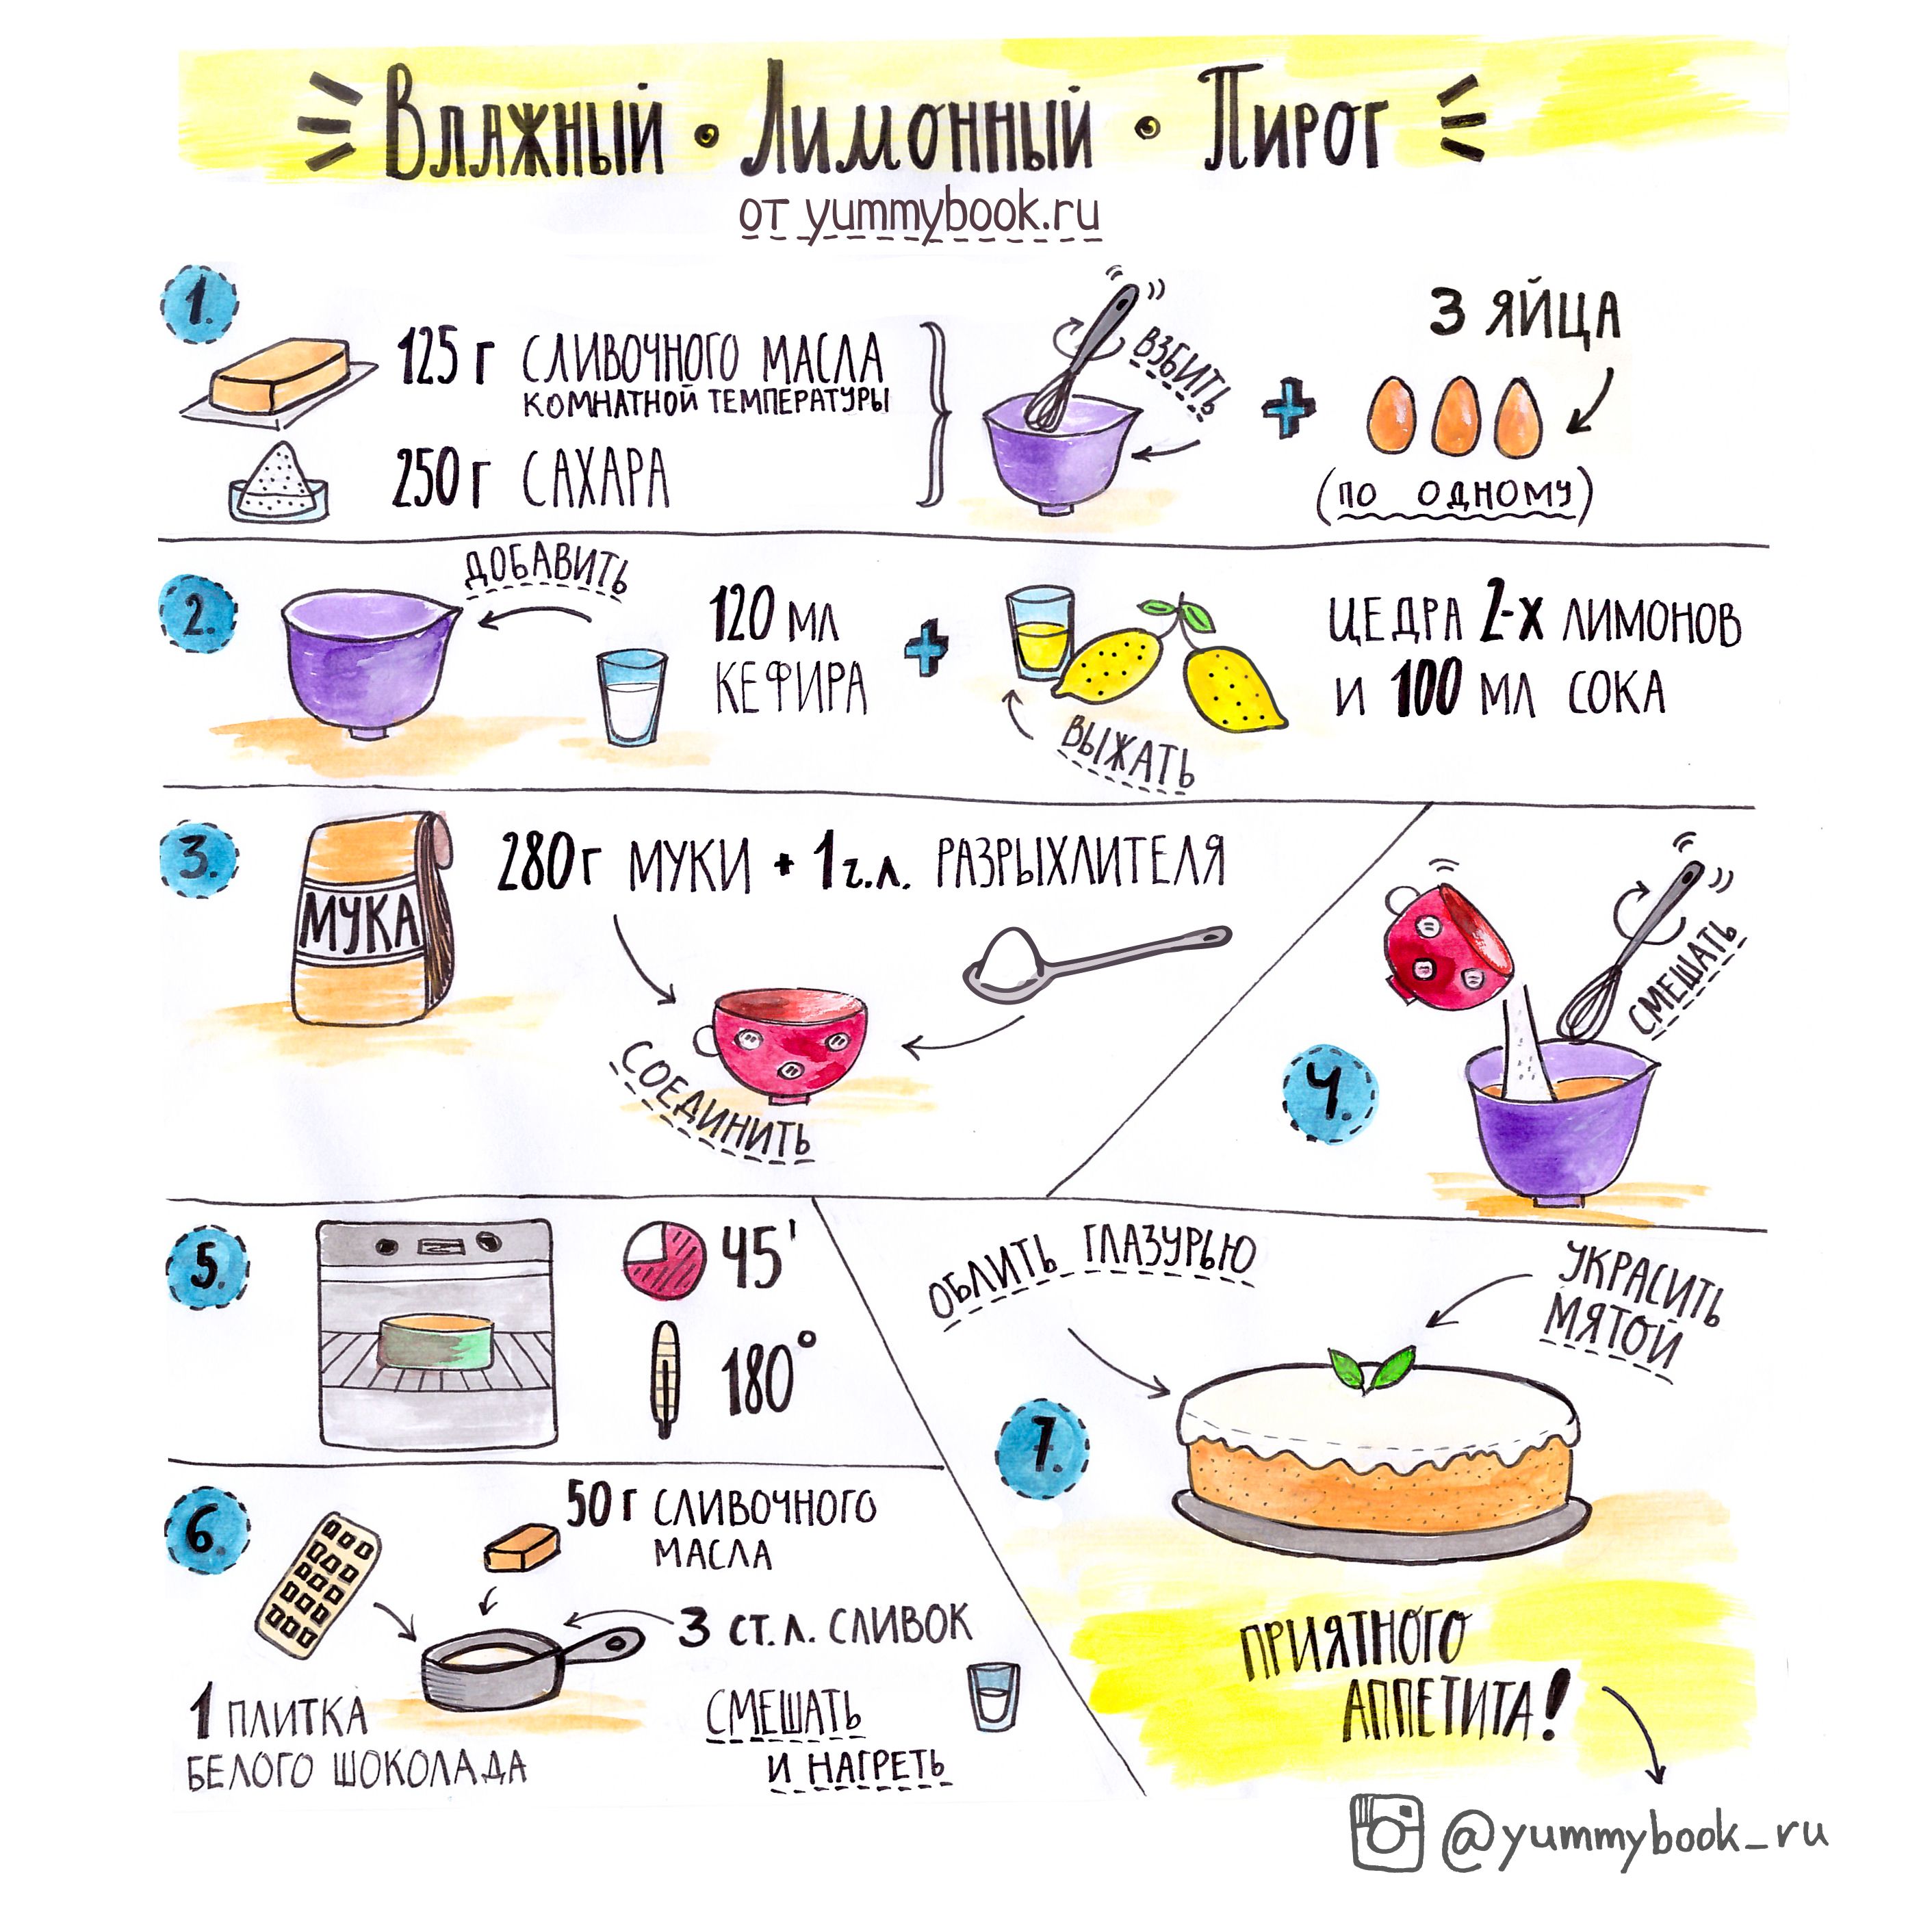 Влажный • Лимонный • Пирог
от yummybook.ru
1.
125 г сливочного масла
комнатной температуры
250 г сахара
взбить
+
3 яйца
(по одному)
2.
добавить
120 мл
кефира
+
выжать
цедра 2-х лимонов
и 100 мл сока
3.
Мука
280 г муки + 1 ч.л. разрыхлителя
соединить
4.
смешать
5.
45'
180°
6.
50 г сливочного
масла
3 ст. л. сливок
1 плитка
белого шоколада
смешать
и нагреть
7.
облить глазурью
украсить
мятой
Приятного
аппетита!
@yummybook_ru